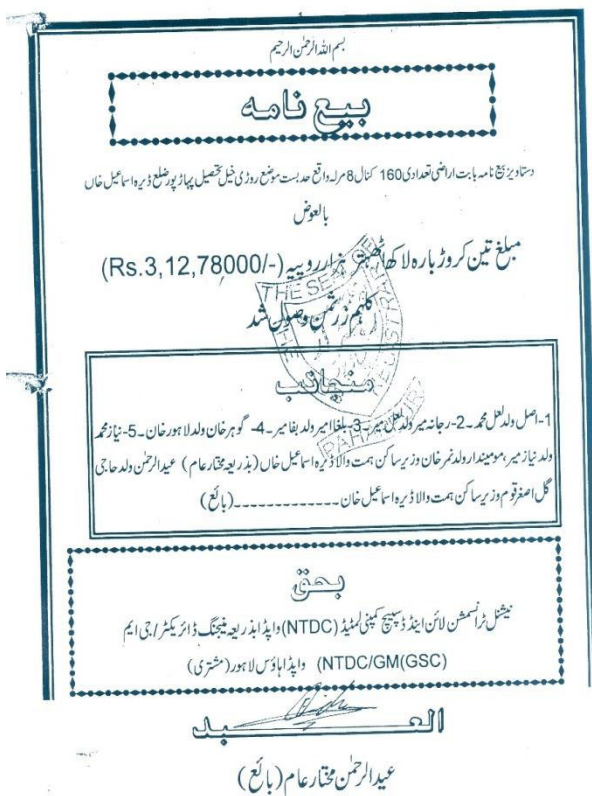 بسم اللہ الرحمن الرحیم
بیع نامہ
دستاویز بیع نامہ بابت اراضی تعدادی 160 کنال 8 مرلہ واقع حدبست موضع روڑی خیل تحصیل پہاڑ پور ضلع ڈیرہ اسماعیل خاں
بالعوض
مبلغ تین کروڑ بارہ لاکھ اٹھہتر ہزار روپیہ (Rs.3,12,78000/-)
کلہم زرثمن وصول شد
THE SEAL OF
REGISTRAR
PAHARPUR
منجانب
1-اصل ولد لعل محمد۔2-رجانہ میر ولد لعل میر۔3-بلغا امیر ولد بفا میر۔4- گوہر خان ولد لاہور خان۔5-نیاز محمد
ولد نیاز میر،مومیندار ولد نمر خان وزیر ساکن ہمت والا ڈیرہ اسماعیل خاں (بذریعہ مختار عام) عبدالرحمٰن ولد حاجی
گل اصغر قوم وزیر ساکن ہمت والا ڈیرہ اسماعیل خان۔۔۔۔۔۔۔۔۔۔۔۔۔(بائع)
بحق
نیشنل ٹرانسمشن لائن اینڈ ڈسپیچ کمپنی لمیٹڈ (NTDC) واپڈا بذریعہ منیجنگ ڈائریکٹر/جی ایم
NTDC/GM(GSC) واپڈا ہاؤس لاہور (مشتری)
العبد
عبدالرحمٰن مختار عام (بائع)